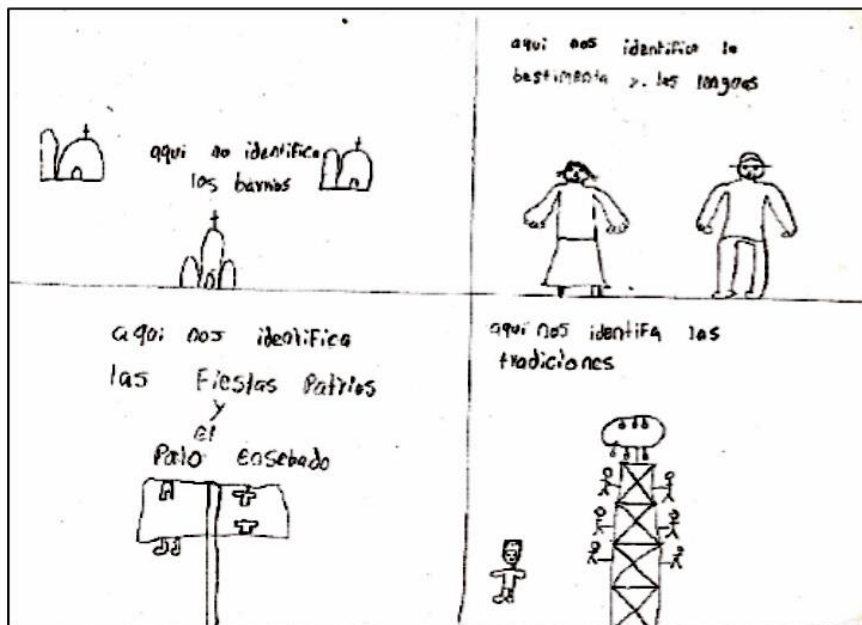 aqui no identifica
los barrios
aqui nos identifica la
bestimenta y. las lenguas
aqui nos identifica
las Fiestas Patrias
y
el
Palo Ensebado
aqui nos identifa las
tradiciones